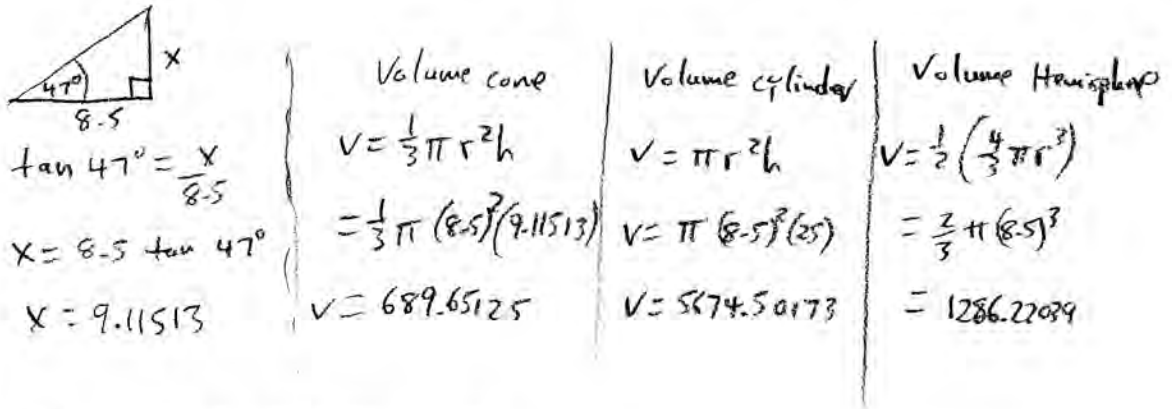 47° x
8.5
tan 47° = x/8.5
x = 8.5 tan 47°
x = 9.11513
Volume cone
V = 1/3 π r²h
= 1/3 π (8.5)²(9.11513)
V = 689.65125
Volume cylinder
V = π r²h
V = π (8.5)²(25)
V = 5674.50173
Volume Hemisphere
V = 1/2 (4/3 πr³)
= 2/3 π (8.5)³
= 1286.22039